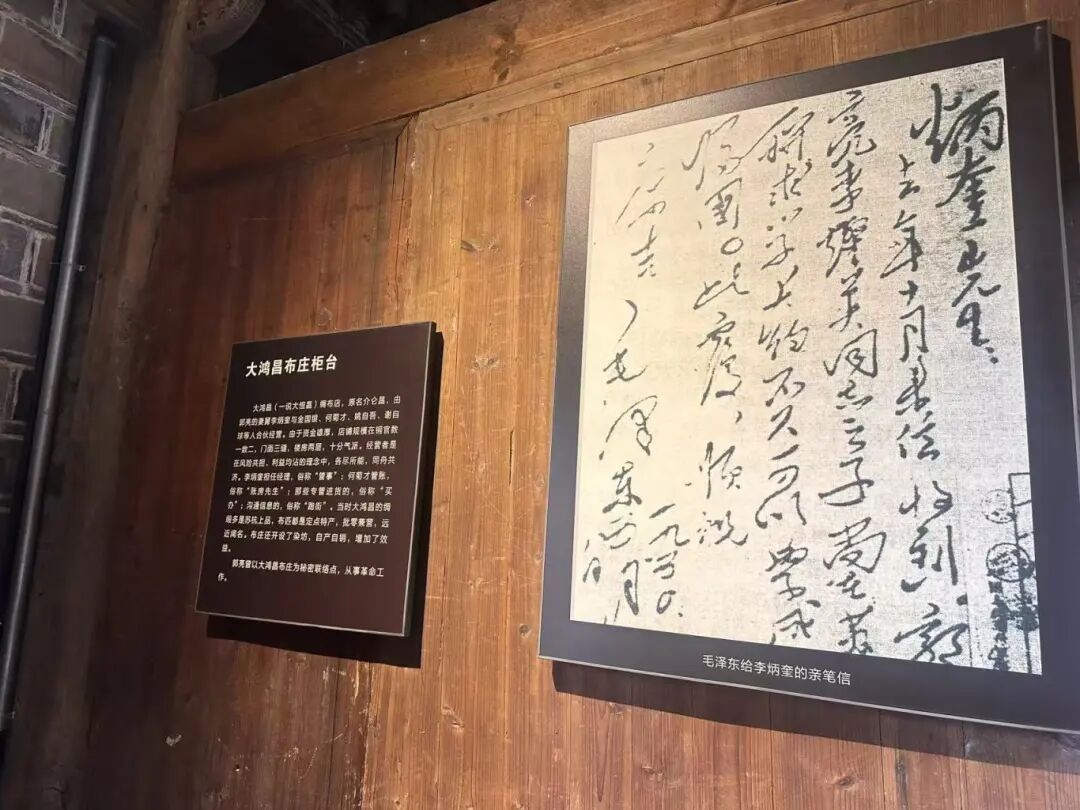 大鸿昌布庄柜台
大鸿昌（一说大恒昌）绸布店，原名介仑昌，由
郭亮的妻舅李炳奎与金国锟、何菊才、姚自吾、谢自
球等人合伙经营。由于资金雄厚，店铺规模在铜官数
一数二，门面三缝，楼房两层，十分气派。经营者是
在风险共担、利益均沾的理念中，各尽所能，同舟共
济。李炳奎担任经理，俗称“管事”；何菊才管账，
俗称“账房先生”；那些专管进货的，俗称“买
办”；沟通信息的，俗称“跑街”。当时大鸿昌的绸
缎多是苏杭上品，布匹都是定点特产，批零兼营，远
近闻名。布庄还开设了染坊，自产自销，增加了效
益。
郭亮曾以大鸿昌布庄为秘密联络点，从事革命工
作。
炳奎先生：
去年十月来信收到，郭
亮李灿英同志之子尚在苏
联求学，大约不久可以学成
归国。此复，顺祝
大吉
毛泽东 一九五〇.
四月
八日
毛泽东给李炳奎的亲笔信